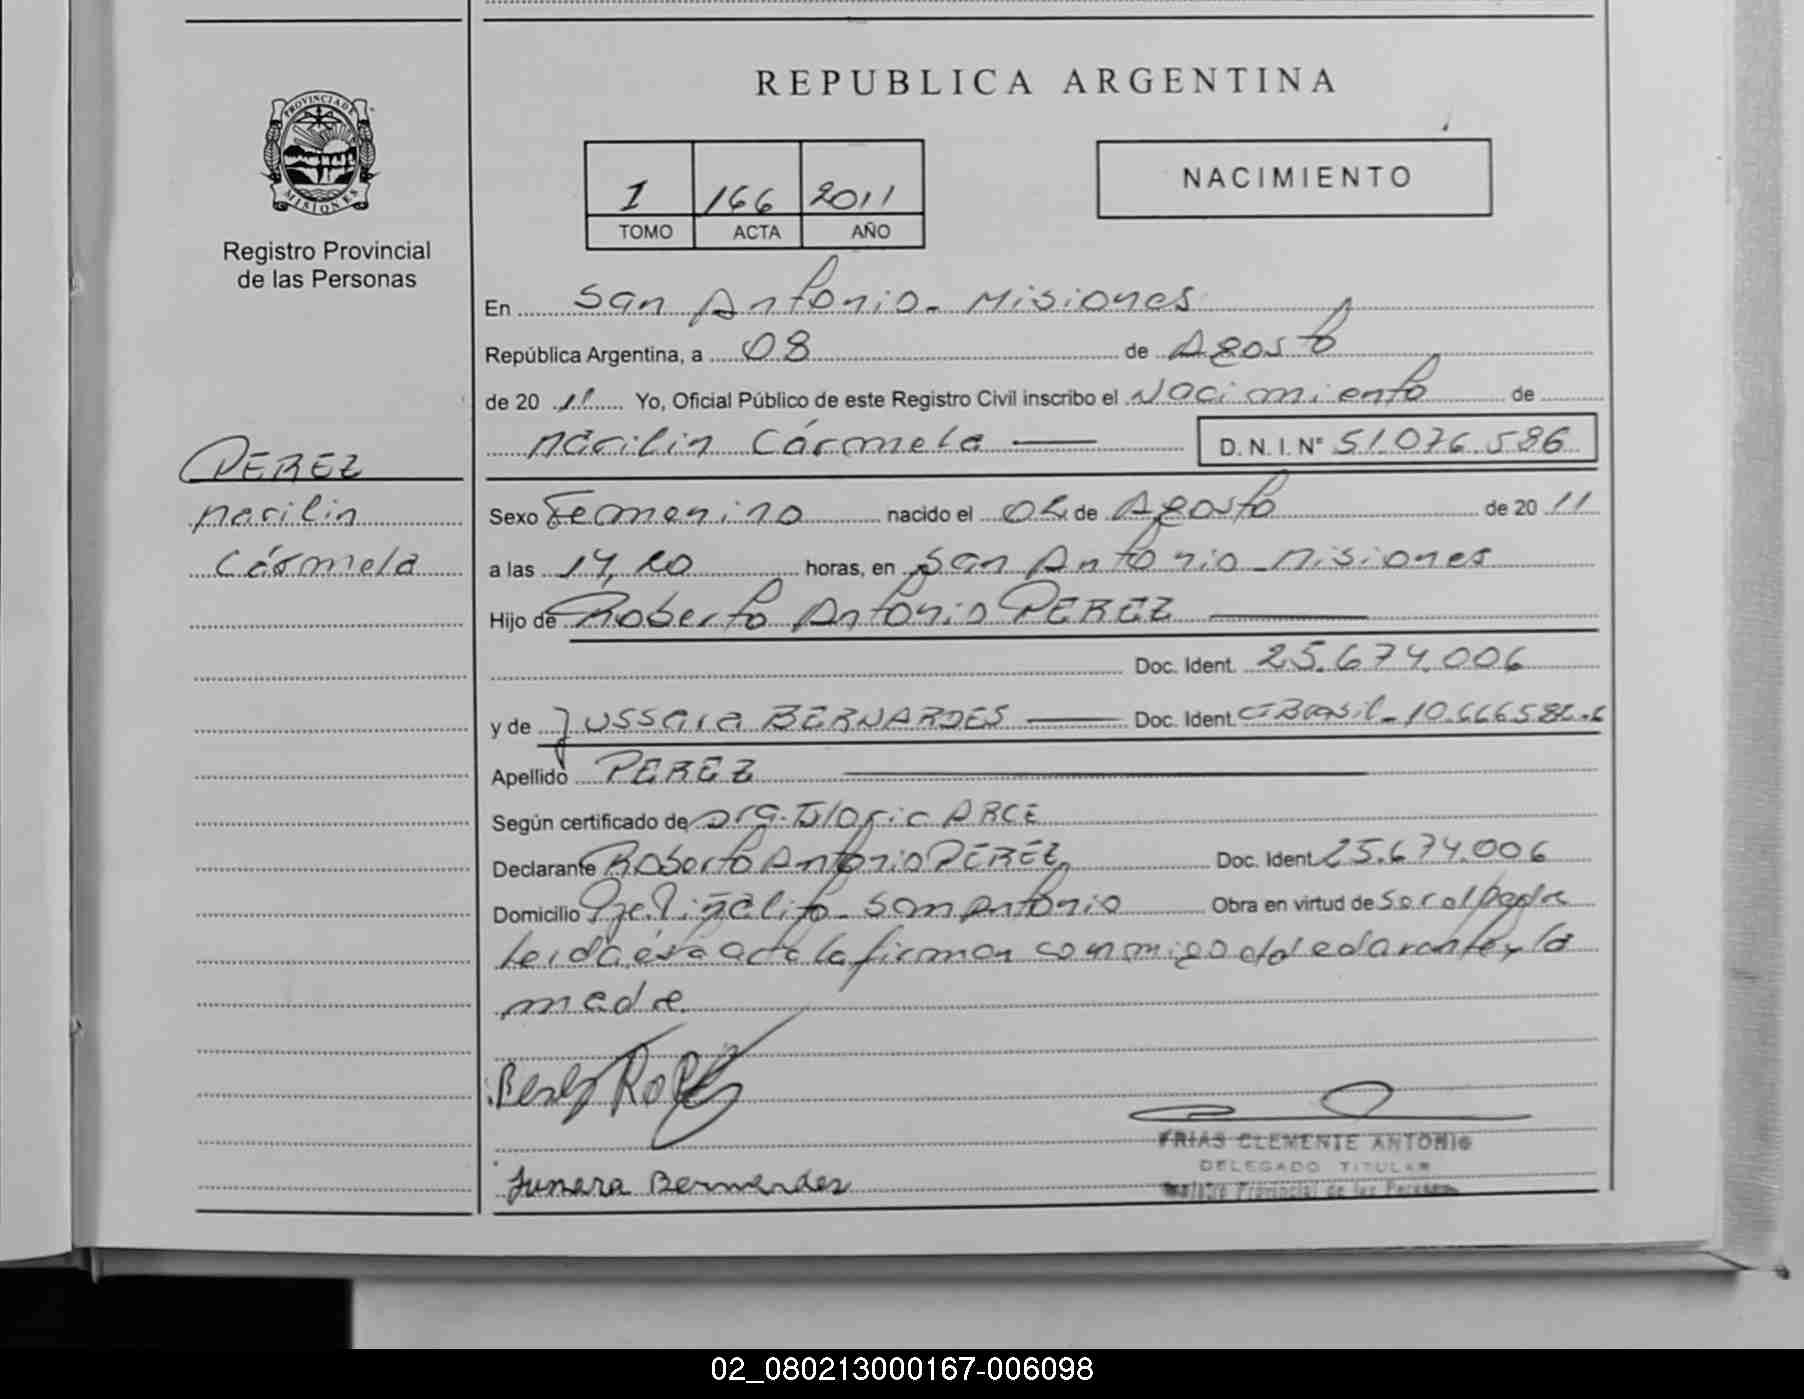 REPUBLICA ARGENTINA
PROVINCIA DE MISIONES
Registro Provincial
de las Personas
I 166 2011
TOMO ACTA AÑO
NACIMIENTO
En San Antonio - Misiones
República Argentina, a 08 de Agosto
de 20 11 Yo, Oficial Público de este Registro Civil inscribo el Nacimiento de
Marilin Cármela D. N. I. Nº 51.076.586
PEREZ
Marilin
Cármela
Sexo Femenino nacido el 02 de Agosto de 20 11
a las 14,20 horas, en San Antonio - Misiones
Hijo de Roberto Antonio PEREZ
Doc. Ident. 25.674.006
y de Jussara BERNARDES Doc. Ident. CI Brasil - 10.666582-6
Apellido PEREZ
Según certificado de ARCE
Declarante Roberto Antonio PEREZ Doc. Ident. 25.674.006
Domicilio Pje. Piñalito - San Antonio Obra en virtud de Ser el padre
Leída ésta acta la firman conmigo el declarante y la
madre.
Perez
Jussara Bernardes
FRIAS CLEMENTE ANTONIO
DELEGADO TITULAR
Registro Provincial de las Personas
02_080213000167-006098